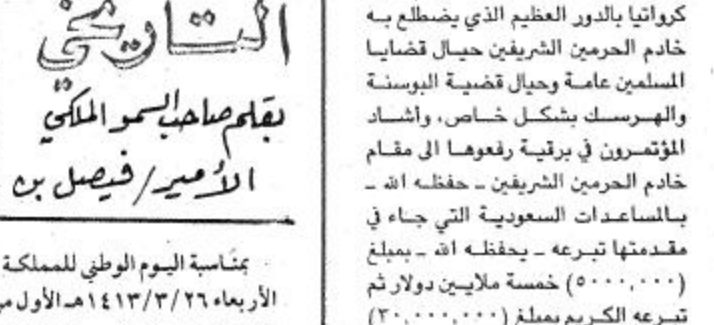 كرواتيا بالدور العظيم الذي يضطلع به
خادم الحرمين الشريفين حيال قضايا
المسلمين عامة وحيال قضية البوسنة
والهرسك بشكل خاص، وأشاد
المؤتمرون في برقية رفعوها الى مقام
خادم الحرمين الشريفين ـ حفظه الله ـ
بالمساعدات السعودية التي جاء في
مقدمتها تبرعه ـ يحفظه الله ـ بمبلغ
(٥٠٠٠,٠٠٠) خمسة ملايين دولار ثم
تبرعه الكريم بمبلغ (٣٠,٠٠٠,٠٠٠)
التاريخي
بقلم صاحب السمو الملكي
الأمير / فيصل بن
بمناسبة اليوم الوطني للمملكة
الأربعاء ١٤١٣/٣/٢٦هـ الأول